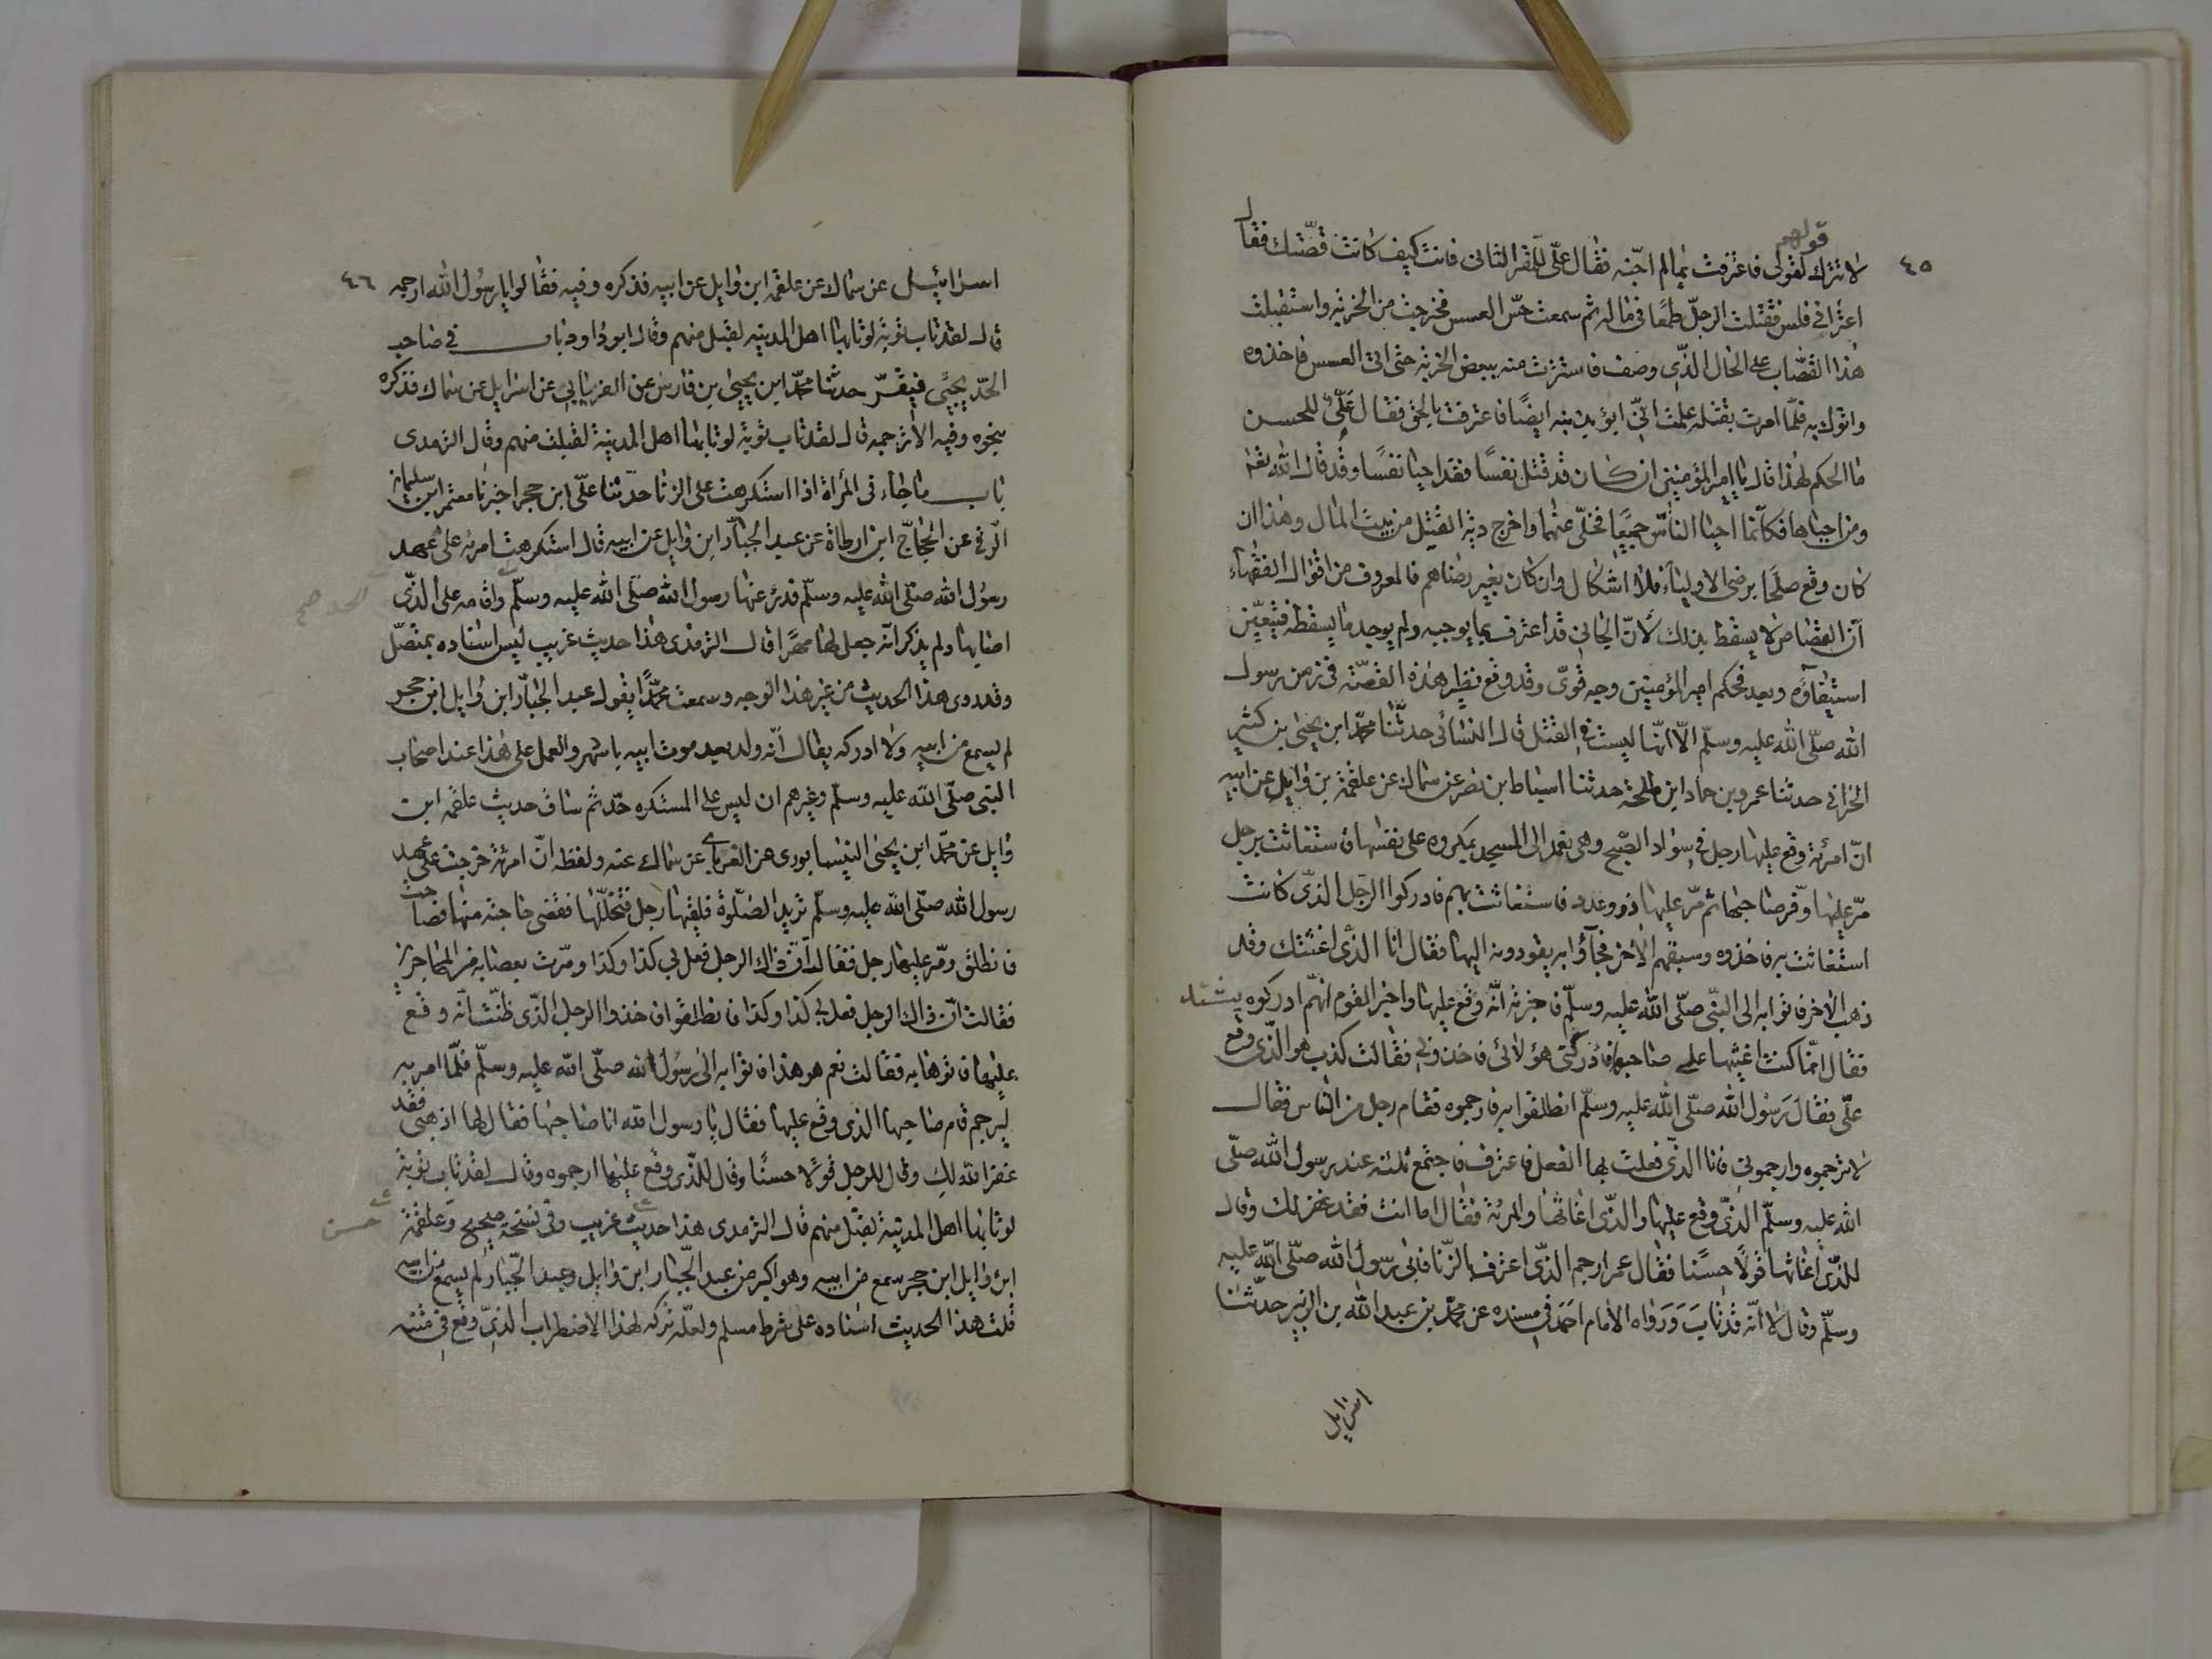 ٤٥
قولهم
لا تترك لقولى فاعترفت بمالم اجنه فقال على للمقر الثانى فانت كيف كانت قصتك فقال
اعرابى فلس فقتلت الرجل طمعا فى ماله ثم سمعت حس العسس فخرجت من الخربة واستقبلت
هذا القصاب على الحال الذى وصف فاسترت منه ببعض الخربة حتى اتى العسس فاخذوه
واتوك به فلما امرت بقتله علمت انى ابوء بدمه ايضًا فاعترفت بالحق فقال علىّ للحسن
ما الحكم لهذا قال يا امير المؤمنين ان كان قد قتل نفسًا فقد احيا نفسًا وقد قال الله تعالى
ومن احياها فكانما احيا الناس جميعًا فخلى عنهما واخرج دية القتيل من بيت المال وهذا ان
كان وقع صلحًا برضى الاولياء فلا اشكال وان كان بغير رضاهم فالمعروف من اقوال الفقهاء
ان القصاص لا يسقط بذلك لان الجانى قد اعترف بما يوجبه ولم يوجد ما يسقطه فيتعين
استيفاؤه وبعد فحكم امير المؤمنين وجه قوى وقد وقع نظير هذه القصة فى زمن رسول
الله صلى الله عليه وسلم الا انها ليست فى القتل قال النسائى حدثنا محمد ابن يحيى بن كثير
الحرانى حدثنا عمرو بن حماد ابن طلحة حدثنا اسباط بن نصر عن سماك عن علقمة بن وايل عن ابيه
ان امرئة وقع عليها رجل فى سواد الصبح وهى تعمد الى المسجد بمكروه على نفسها فاستغاثت برجل
مر عليها وفر صاحبها ثم مر عليها ذوو عدد فاستغاثت بهم فادركوا الرجل الذى كانت
استغاثت به فاخذوه وسبقهم الاخر فجاؤا به يقودونه اليها فقال انا الذى اغثتك وقد
ذهب الاخر فاتوا به الى النبى صلى الله عليه وسلم فاخبرته انه وقع عليها واخبر القوم انهم ادركوه يشتد
فقال انما كنت اغيثها على صاحبها فادركنى هؤلائى فاخذونى فقالت كذب هو الذى وقع
علىّ فقال رسول الله صلى الله عليه وسلم انطلقوا به فارجموه فقام رجل من الناس فقال
لا ترجموه وارجمونى فانا الذى فعلت بها الفعل فاعترف فاجتمع ثلثة عند رسول الله صلى
الله عليه وسلم الذى وقع عليها والذى اغاثها والمرئة فقال اما انت فقد غفر لك وقال
للذى اغاثها قولًا حسنًا فقال عمر ارجم الذى اعترف بالزنا فابى رسول الله صلى الله عليه
وسلم وقال لا انه قد تاب ورواه الامام احمد فى مسنده عن محمد بن عبد الله بن الزبير حدثنا
اسرايل
٤٦
اسرائيل عن سماك عن علقمة ابن وايل عن ابيه فذكره وفيه فقالوا يا رسول الله ارجمه
قال لقد تاب توبة لو تابها اهل المدينه لقبل منهم وقال ابو داود باب فى صاحب
الحد يجيئ فيقر حدثنا محمد ابن يحيى بن فارس عن الفريابى عن اسرايل عن سماك فذكره
بنحوه وفيه الا ترجمه قال لقد تاب توبة لو تابها اهل المدينة لقبلت منهم وقال الترمذى
باب ما جاء فى المرأة اذا استكرهت على الزنا حدثنا على ابن حجر اخبرنا معتمر ابن سليمان
الرقى عن الحجاج ابن ارطاة عن عبد الجبار ابن وايل عن ابيه قال استكرهت امرئة على عهد
رسول الله صلى الله عليه وسلم فدرء عنها رسول الله صلى الله عليه وسلم واقامه على الذى
الحد صح
اصابها ولم يذكر انه جعل لها مهرًا قال الترمذى هذا حديث غريب ليس اسناده بمتصل
وقد روى هذا الحديث من غير هذا الوجه وسمعت محمدًا يقول عبد الجبار ابن وايل ابن حجر
لم يسمع من ابيه ولا ادركه يقال انه ولد بعد موت ابيه باشهر والعمل على هذا عند اصحاب
النبى صلى الله عليه وسلم وغيرهم ان ليس على المستكره حد ثم ساق حديث علقمة ابن
وايل عن محمد ابن يحيى النيسابورى عن الفريابى عن سماك عنه ولفظه ان امرئة خرجت على عهد
رسول الله صلى الله عليه وسلم تريد الصلوة فلقيها رجل فتجللها فقضى حاجته منها فصاحت
فانطلق ومر عليها رجل فقالت ان ذاك الرجل فعل بى كذا وكذا ومرت بعصابة من المهاجرين
فقالت ان ذاك الرجل فعل بى كذا وكذا فانطلقوا فاخذوا الرجل الذى ظنت انه وقع
عليها فاتوها به فقالت نعم هو هذا فاتوا به الى رسول الله صلى الله عليه وسلم فلما امر به
ليرجم قام صاحبها الذى وقع عليها فقال يا رسول الله انا صاحبها فقال لها اذهبى فقد
غفر الله لك وقال للرجل قولًا حسنًا وقال للذى وقع عليها ارجموه وقال لقد تاب توبة
لو تابها اهل المدينة لقبل منهم قال الترمذى هذا حديث غريب وفى نسخة صحيح وعلقمة
حسن
ابن وايل ابن حجر سمع من ابيه وهو اكبر من عبد الجبار ابن وايل وعبد الجبار لم يسمع من ابيه
قلت هذا الحديث اسناده على شرط مسلم ولعله تركه لهذا الاضطراب الذى وقع فى متنه